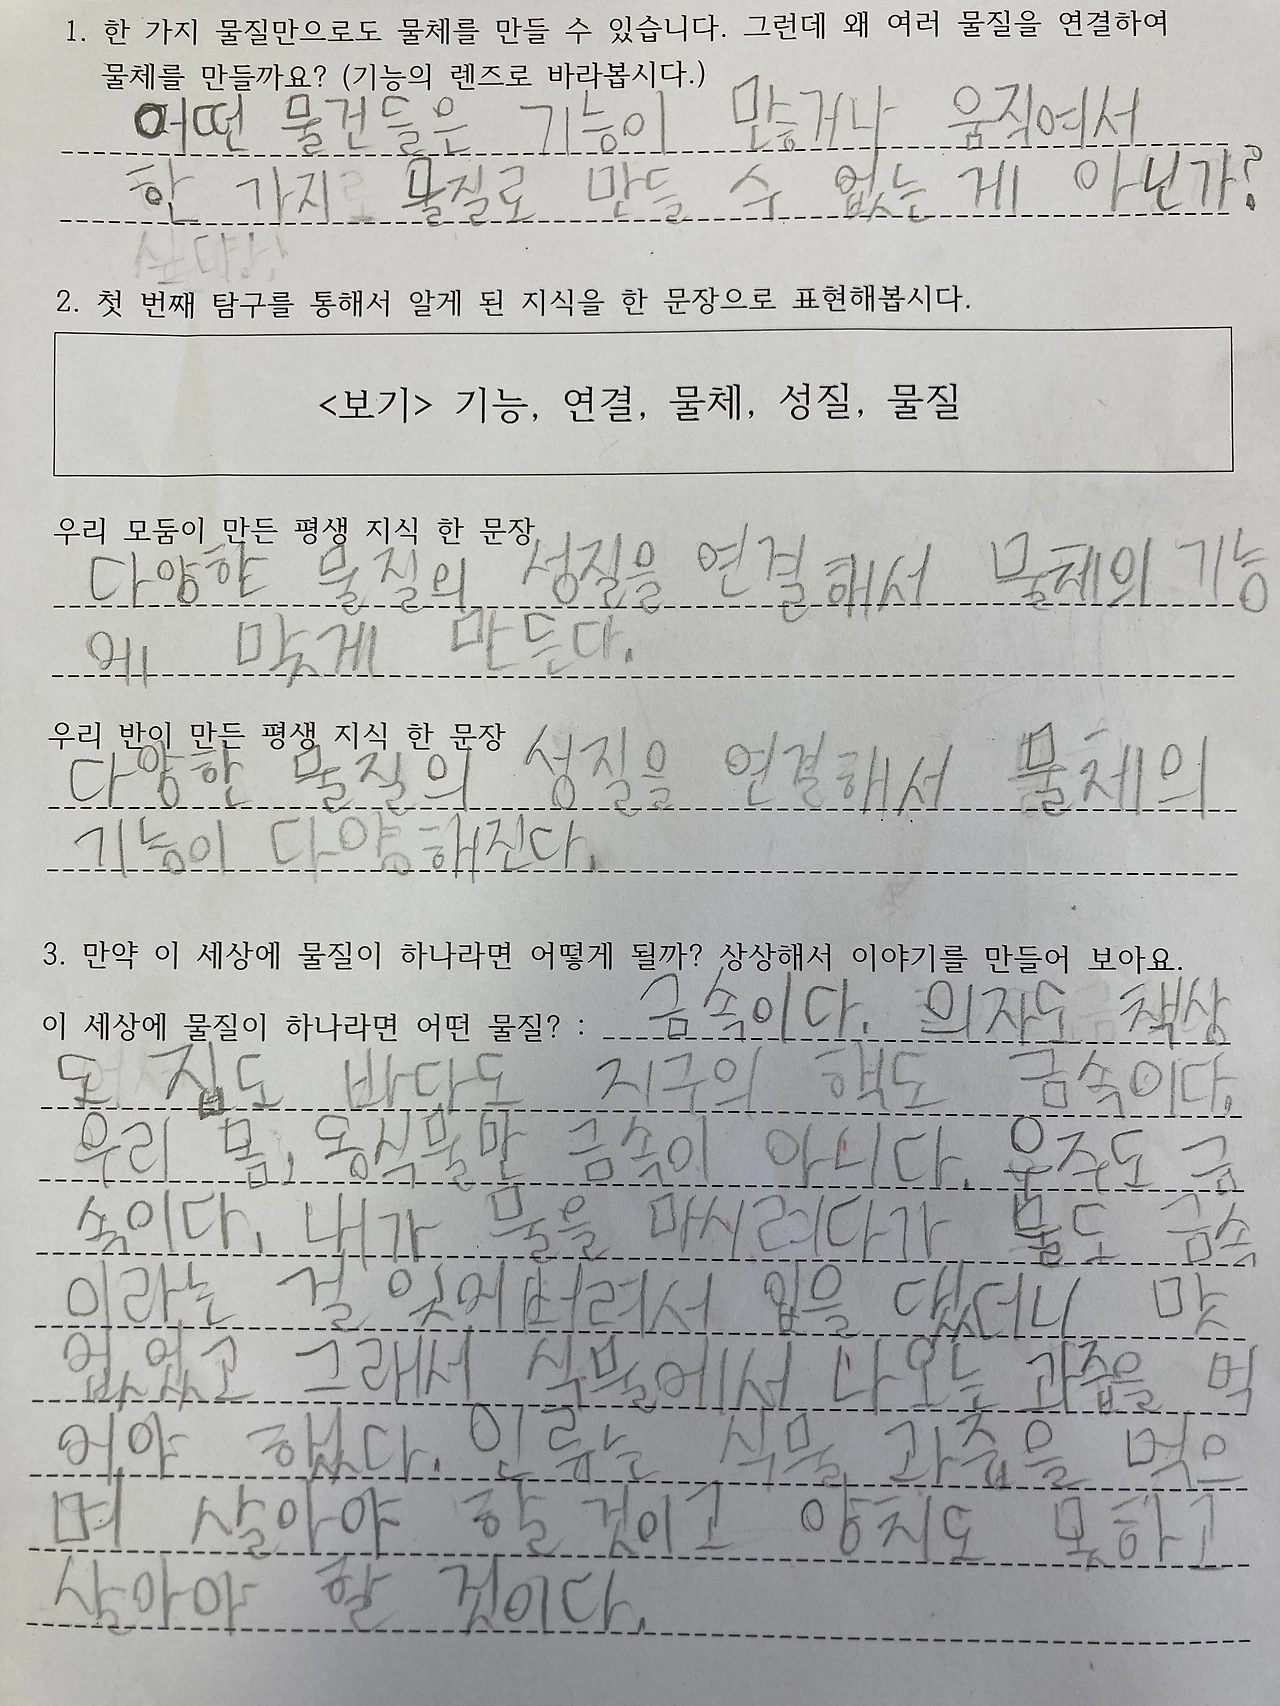 1. 한 가지 물질만으로도 물체를 만들 수 있습니다. 그런데 왜 여러 물질을 연결하여
물체를 만들까요? (기능의 렌즈로 바라봅시다.)
어떤 물건들은 기능이 많거나 움직여서
한 가지 물질로 만들 수 없는 게 아닌가?
2. 첫 번째 탐구를 통해서 알게 된 지식을 한 문장으로 표현해봅시다.
<보기> 기능, 연결, 물체, 성질, 물질
우리 모둠이 만든 평생 지식 한 문장
다양한 물질의 성질을 연결해서 물체의 기능
에 맞게 만든다.
우리 반이 만든 평생 지식 한 문장
다양한 물질의 성질을 연결해서 물체의
기능이 다양해진다.
3. 만약 이 세상에 물질이 하나라면 어떻게 될까? 상상해서 이야기를 만들어 보아요.
이 세상에 물질이 하나라면 어떤 물질? : 금속이다. 의자도 책상
도 집도 바다도 지구의 핵도 금속이다.
우리 몸, 동식물만 금속이 아니다. 우주도 금
속이다. 내가 물을 마시려다가 물도 금속
이라는 걸 잊어버려서 입을 댔더니 맛
없었고 그래서 식물에서 나오는 과즙을 먹
어야 했다. 인류는 식물 과즙을 먹으
며 살아야 할 것이고 양치도 못하고
살아야 할 것이다.